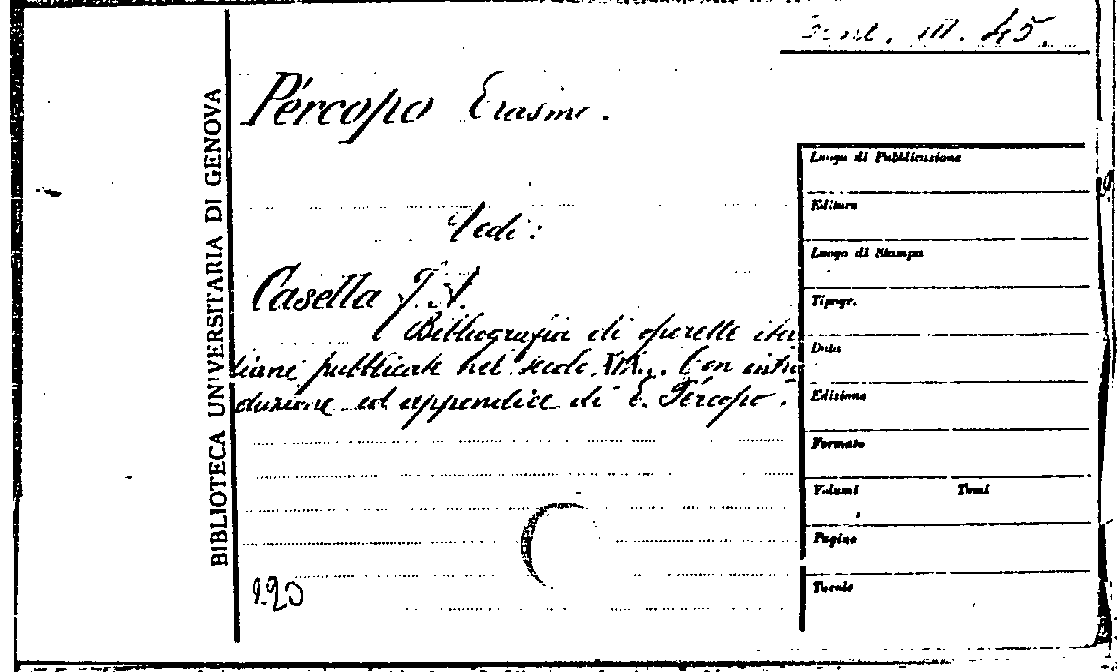 Gent. III. 45.
Pèrcopo Erasmo.
Vedi:
Casella J. A.
Bibliografia di operette ita
liane pubblicate nel secolo XIX. Con intro
duzione ed appendice di E. Pèrcopo.
BIBLIOTECA UNIVERSITARIA DI GENOVA
Luogo di Pubblicazione
Editore
Luogo di Stampa
Tipogr.
Data
Edizione
Formato
Volumi Tomi
Pagine
Tavole
220